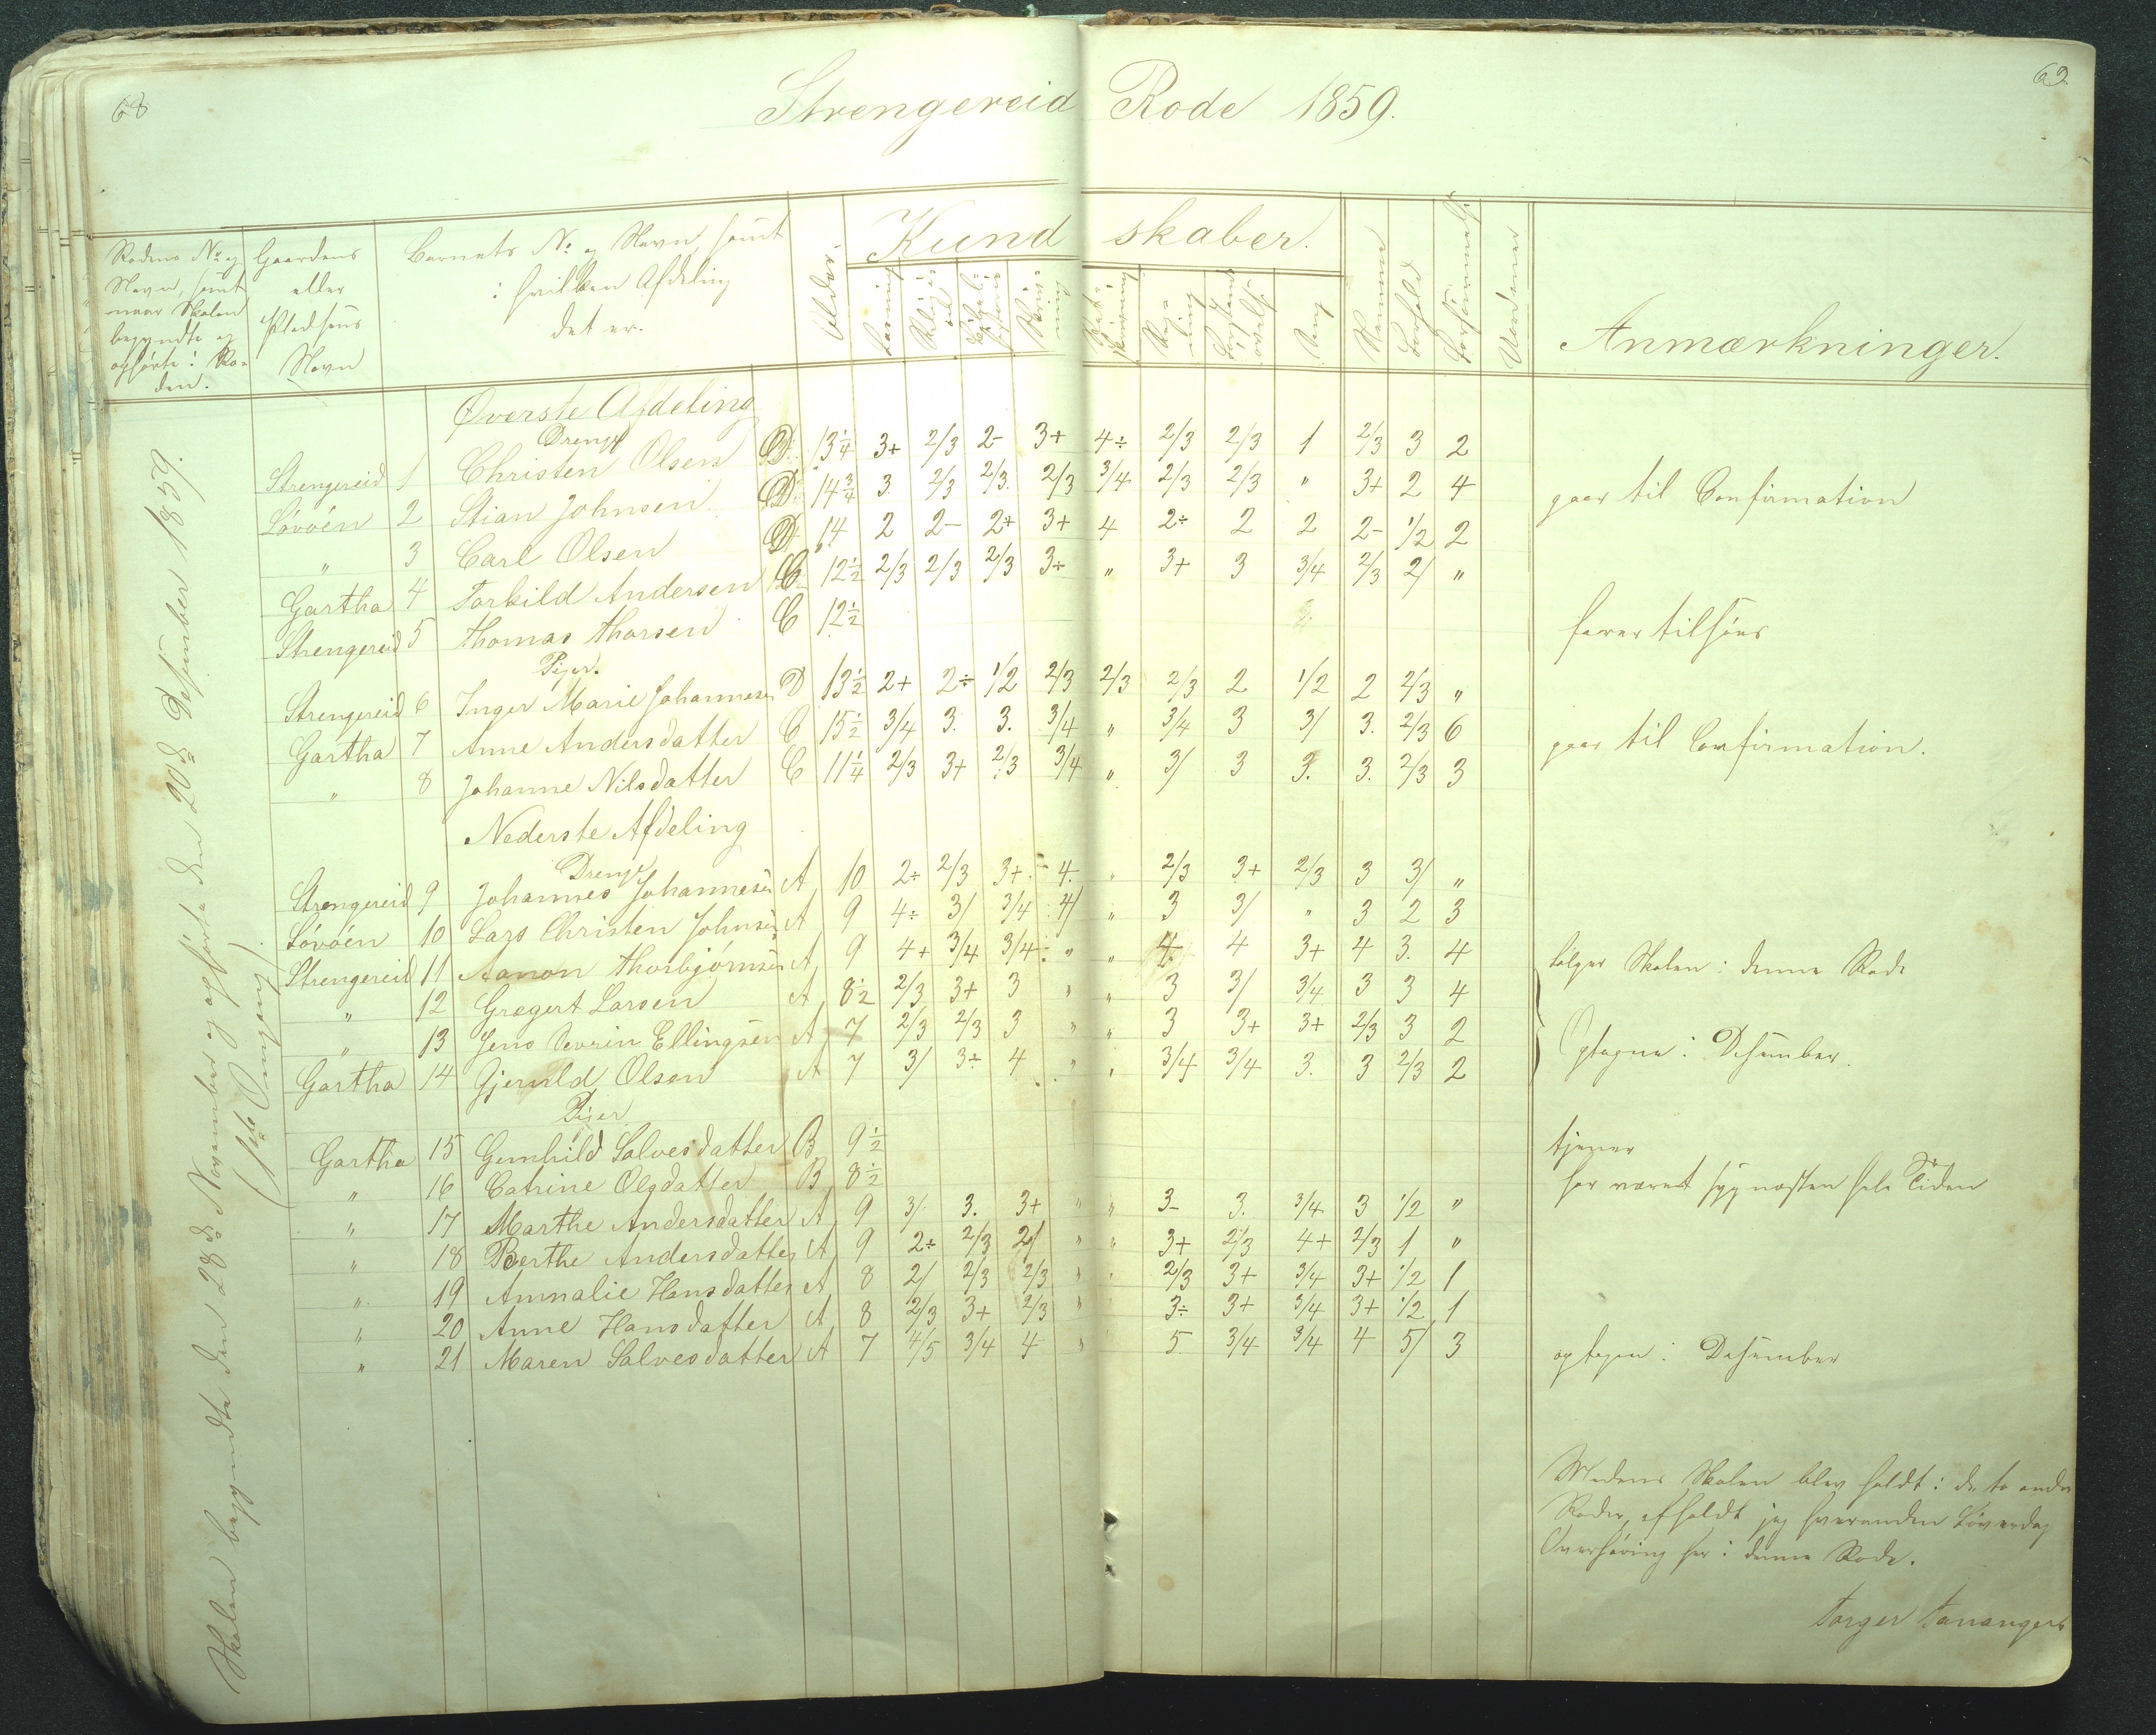 68
69
Strengereid Rode 1859.
Rodens No og Navn, samt naar Skolen begyndte og ophørte i Roden.
Gaardens eller Pladsens Navn
Barnets No og Navn, samt i hvilken Afdeling det er.
Alder.
Kundskaber.
Læsning
Religion
Bibelhistorie
Skrivning
Retskrivning
Regning
Forstandsøvelse
Sang
Nemme
Forhold
Forsømmelse
Anmærkninger.
Skolen begyndte den 28d November og ophørte den 20d Desember 1859.
(1ste Omgang)
Øverste Afdeling
Drenge
Strengereid 1 Christen Olsen D 13 1/4 3+ 2/3 2- 3+ 4÷ 2/3 2/3 1 2/3 3 2
Lövöen 2 Stian Johnsen D 14 3/4 3. 2/3 2/3. 2/3 3/4 2/3 2/3 " 3+ 2 4 gaar til Confirmation
" 3 Carl Olsen D 14 2 2- 2+ 3+ 4 2÷ 2 2 2- 1/2 2
Gartha 4 Torkild Andersen C 12 1/2 2/3 2/3 2/3 3÷ " 3+ 3 3/4 2/3 2/ "
Strengereid 5 Thomas Thorsen C 12 1/2 farer tilsøes
Piger.
Strengereid 6 Inger Marie Johannesen D 13 1/2 2+ 2÷ 1/2 2/3 2/3 2/3 2 1/2 2 2/3 "
Gartha 7 Anne Andersdatter C 15 1/2 3/4 3. 3. 3/4 " 3/4 3 3/ 3. 2/3 6 gaar til Confirmation.
" 8 Johanne Nilsdatter C 11 1/4 2/3 3+ 2/3 3/4 " 3/ 3 3. 3. 2/3 3
Nederste Afdeling
Drenge
Strengereid 9 Johannes Johannesen A 10 2÷ 2/3 3+ 4. " 2/3 3+ 2/3 3 3/ "
Lövöen 10 Lars Christen Johnsen A 9 4÷ 3/ 3/4 4/ " 3 3/ " 3 2 3
Strengereid 11 Aanon Thorbjörnsen A 9 4+ 3/4 3/4 " " 4 4 3+ 4 3. 4 følger Skolen i denne Rode
" 12 Gregert Larsen A 8 1/2 2/3 3+ 3 " " 3 3/ 3/4 3 3 4
" 13 Jens Severin Ellingsen A 7 2/3 2/3 3 " " 3 3+ 3+ 2/3 3 2 Optagne i Desember.
Gartha 14 Gjeruld Olsen A 7 3/ 3÷ 4 " " 3/4 3/4 3. 3 2/3 2
Piger
Gartha 15 Gunhild Salvesdatter B 9 1/2 tjener
" 16 Catrine Olsdatter B 8 1/2 har været syg næsten hele Tiden
" 17 Marthe Andersdatter A 9 3/ 3. 3+ " " 3- 3. 3/4 3 1/2 "
" 18 Berthe Andersdatter A 9 2÷ 2/3 2/ " " 3+ 2/3 4+ 2/3 1 "
" 19 Amnalie Hansdatter A 8 2/ 2/3 2/3 " " 2/3 3+ 3/4 3+ 1/2 1
" 20 Anne Hansdatter A 8 2/3 3+ 2/3 " 3÷ 3+ 3/4 3+ 1/2 1
" 21 Maren Salvesdatter A 7 4/5 3/4 4 " 5. 3/4 3/4 4 5/ 3 optagen i Desember
Medens Skolen blev holdt i de to andre
Roder, afholdt jeg hveranden Löverdag
Overhøring her i denne Rode.
Torger Tananger